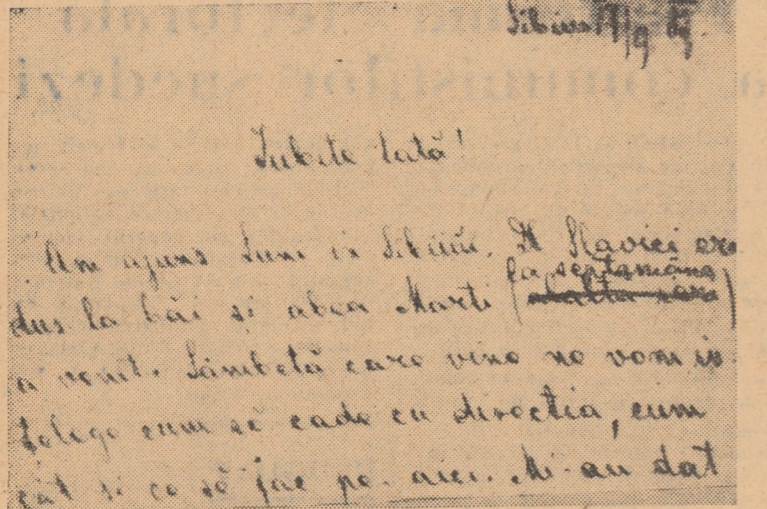 Sibiu 17/9
Iubite tată!
Am ajuns Luni in Sibiiu. Dl Slavici era
la septamâna
dus la băi și abea Marti (alalta sera)
a venit. Sâmbetă care vine ne vom in-
țelege cum să cade cu direcția, cum
cât și ce să fac pe-aici. Mi-au dat